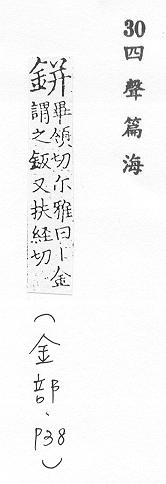 30四聲篇海
鉼 畢領切尔雅曰卜金
謂之鈑又扶経切
(金部、P38)